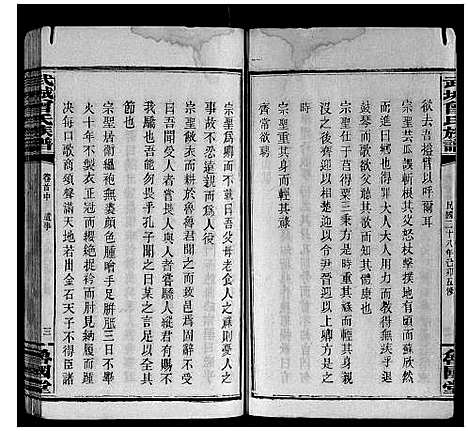 武城曾氏族譜
民國二十八年己卯五修
欲去吾搤臂以呼爾耳
宗聖芸瓜誤斬根其父怒杖擊撲地有頃而蘇欣然
而進曰鄉也得罪大人大人用力而教得無疾乎退
鼓琴而歌欲其父聽知其體康也
宗聖仕于莒得粟三秉方是時重其祿而輕其身親
沒之後齊迎以相楚迎以令尹晉迎以上卿方是之
時
宗聖重其身而輕其祿
齊常欲聘
宗聖為卿而不就曰吾父母老食人之祿則憂人之
事故不忍遠親而為人役
宗聖敝衣而耕於魯魯君聞之而致邑焉固辭不受
曰吾聞受人者嘗畏人與人者嘗驕人縱君有賜不
我驕也吾能勿畏乎孔子聞之曰某之言足以全其
節也
宗聖居衛縕袍無裘顏色腫噲手足胼胝三日不舉
火十年不製衣正冠而纓絕捉衿而肘見納履而踵
決每口歌商頌聲滿天地若出金石天子不得臣諸
武城曾氏族譜
卷首中
遺事
三
魯國堂